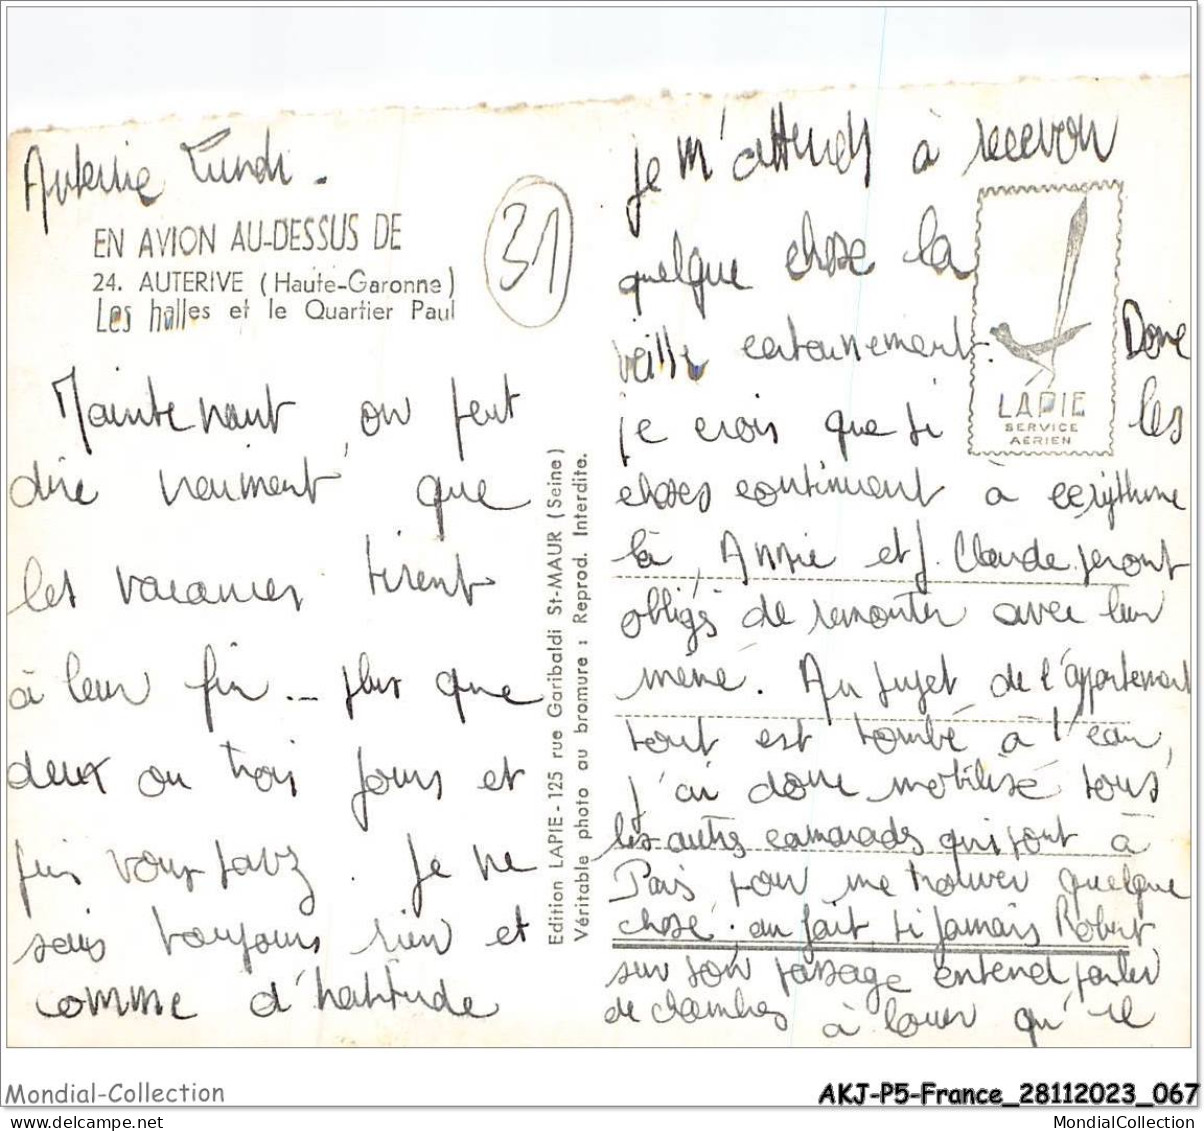 Auterive Lundi -
EN AVION AU-DESSUS DE
24. AUTERIVE (Haute-Garonne)
Les halles et le Quartier Paul
31
Maintenant, on peut
dire vraiment que
les vacances tirent
à leur fin -- plus que
deux ou trois jours et
puis vous savez. Je ne
sais toujours rien et
comme d'habitude
Edition LAPIE - 125 rue Garibaldi St-MAUR (Seine)
Véritable photo au bromure : Reprod. Interdite.
je m'attends à recevoir
quelque chose la
veille certainement. Donc
je crois que si les
choses continuent à ce rythme
là, Annie et J. Claude seront
obligés de remonter avec leur
mémé. Au sujet de l'appartement
tout est tombé à l'eau,
j'ai donc mobilisé tous
les autres camarades qui sont à
Paris pour me trouver quelque
chose. au fait si jamais Robert
sur son passage entend parler
de chambres à louer qu'il
LAPIE
SERVICE
AÉRIEN
Mondial-Collection
AKJ-P5-France_28112023_067
MondialCollection.com